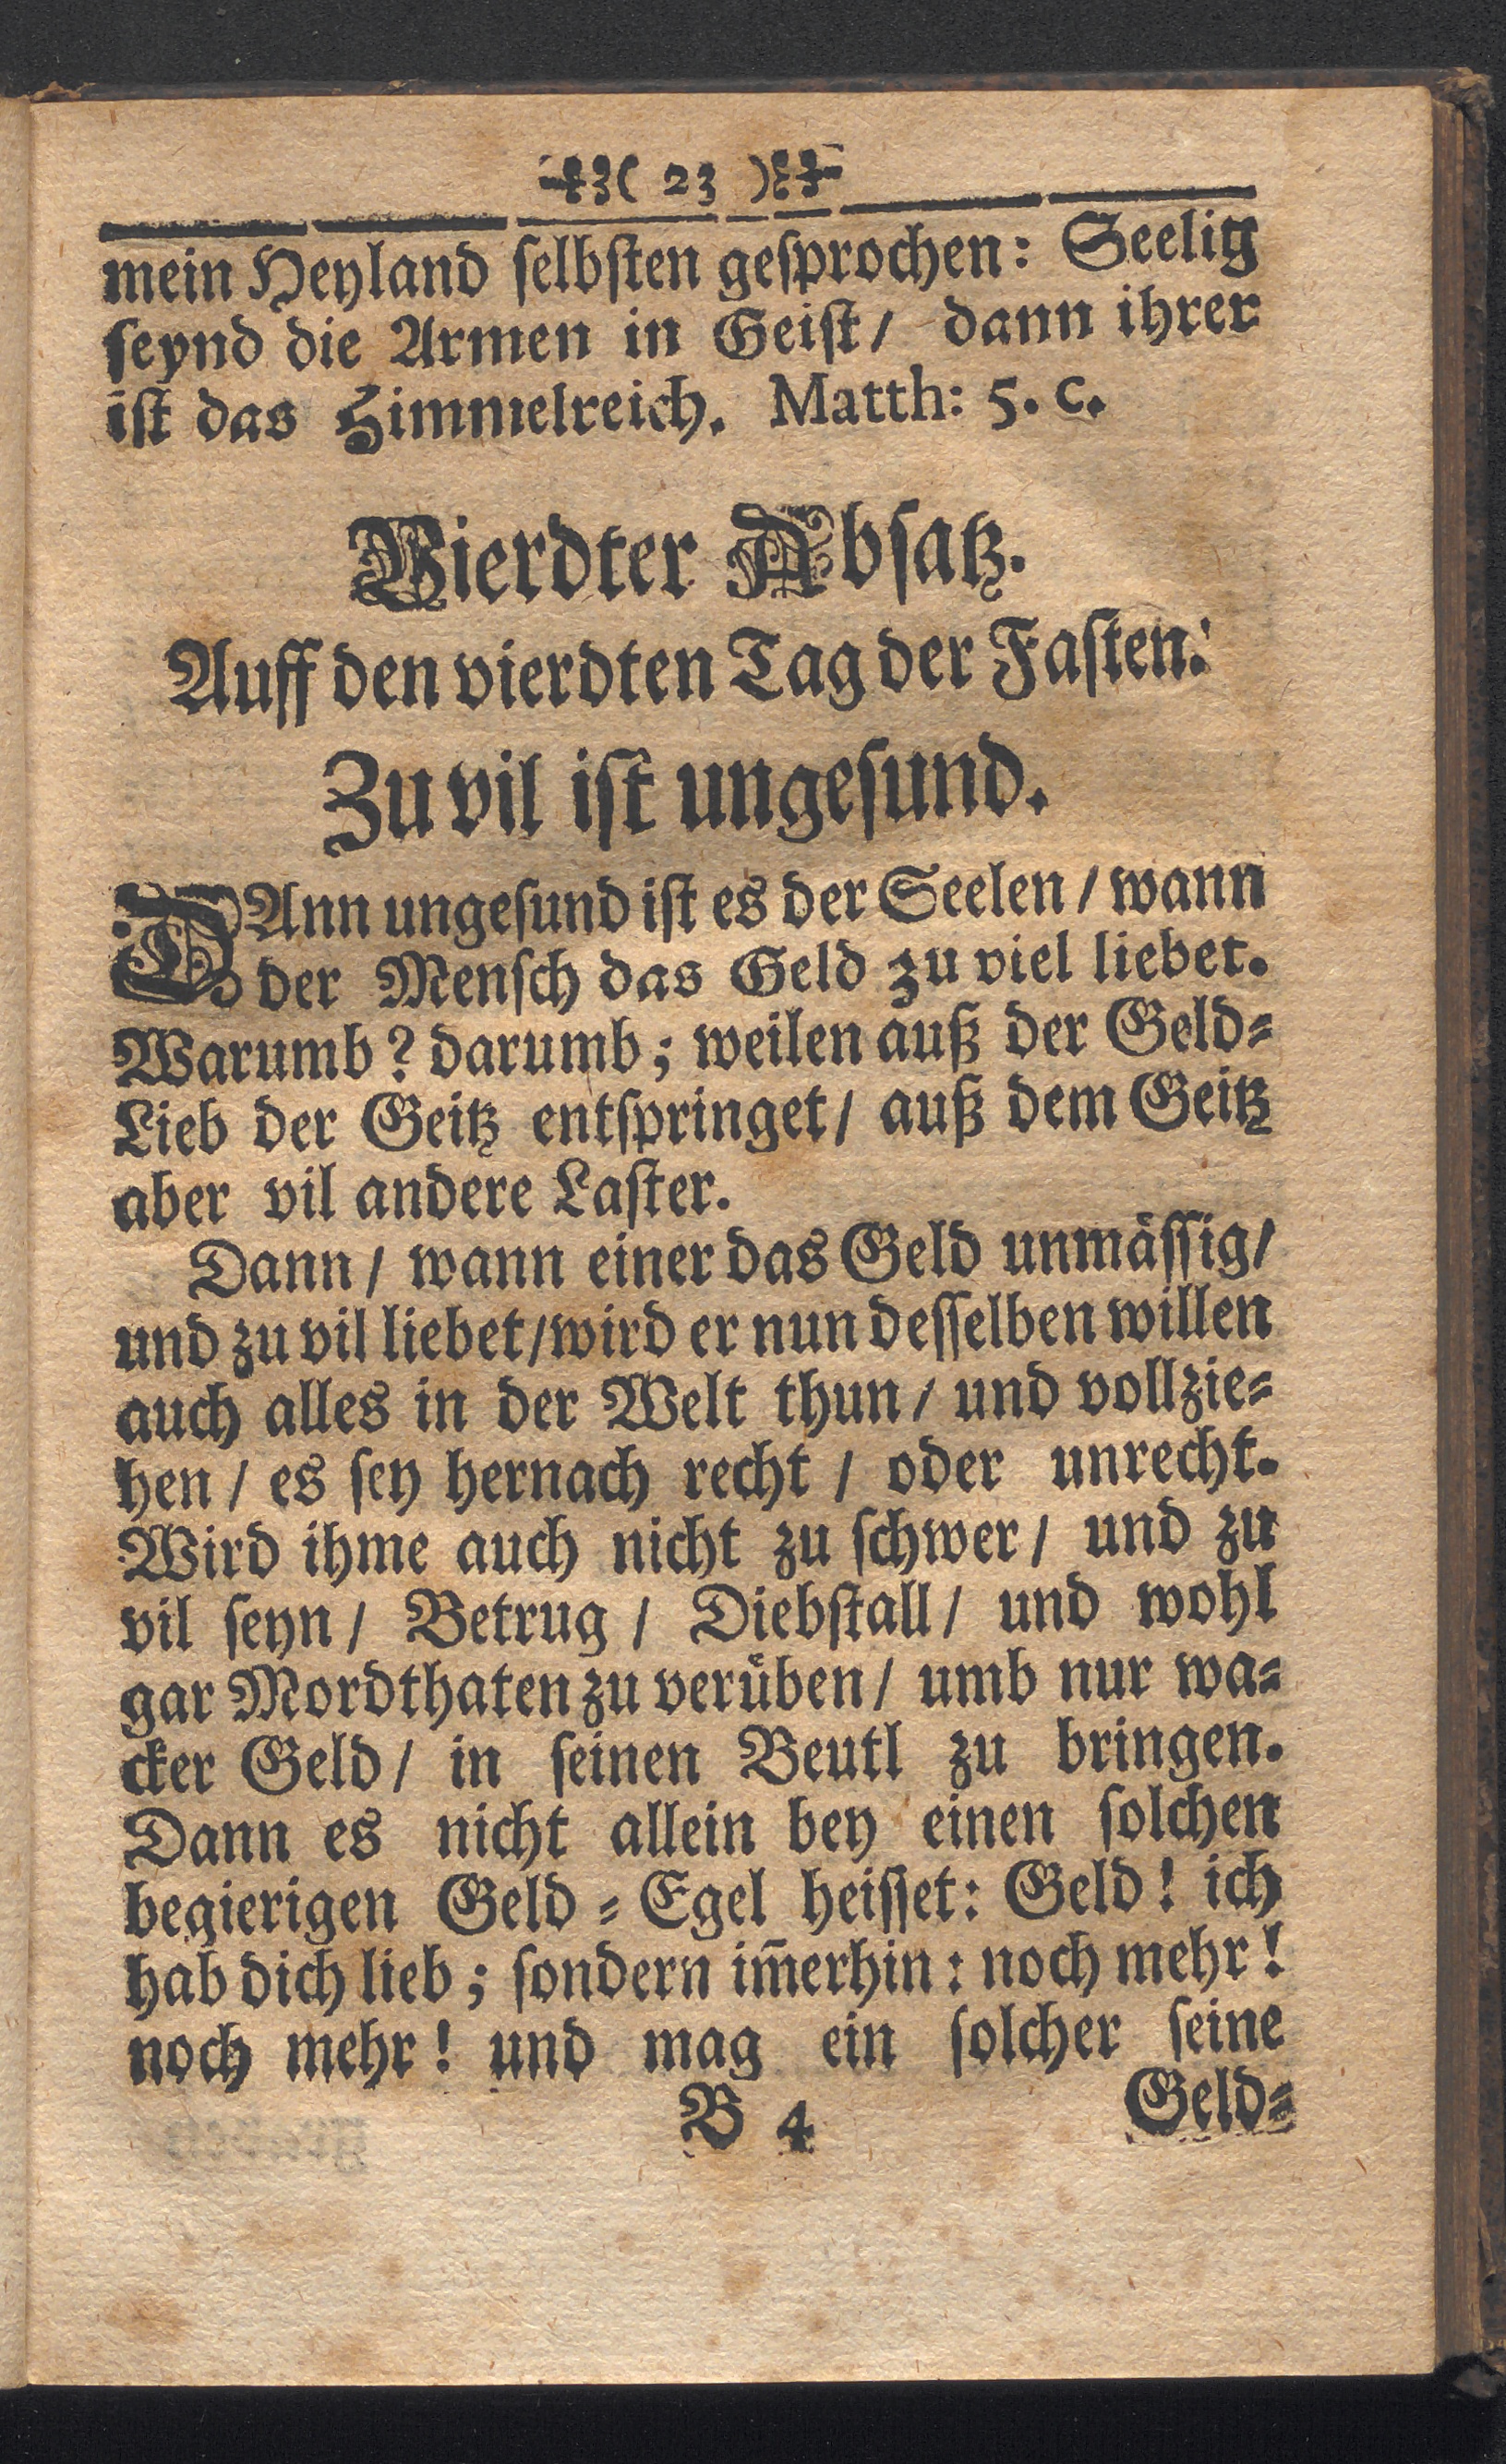 ( 23 )
mein Heyland ſelbſten geſprochen: Seelig
ſeynd die Armen in Geiſt/ dann ihrer
iſt das Himmelreich. Matth: 5. c.
Vierdter Abſatz.
Auff den vierdten Tag der Faſten.
Zu vil iſt ungeſund.
DAnn ungeſund iſt es der Seelen / wann
der Menſch das Geld zu viel liebet.
Warumb? darumb; weilen auß der Geld⸗
Lieb der Geitz entſpringet/ auß dem Geitz
aber vil andere Laſter.
Dann / wann einer das Geld unmäſſig/
und zu vil liebet/wird er nun deſſelben willen
auch alles in der Welt thun / und vollzie⸗
hen / es ſey hernach recht / oder unrecht.
Wird ihme auch nicht zu ſchwer / und zu
vil ſeyn / Betrug / Diebſtall / und wohl
gar Mordthaten zu verüben / umb nur wa⸗
cker Geld / in ſeinen Beutl zu bringen.
Dann es nicht allein bey einen ſolchen
begierigen Geld ⸗ Egel heiſſet: Geld! ich
hab dich lieb; ſondern im̃erhin: noch mehr!
noch mehr! und mag ein ſolcher ſeine
B 4 Geld⸗